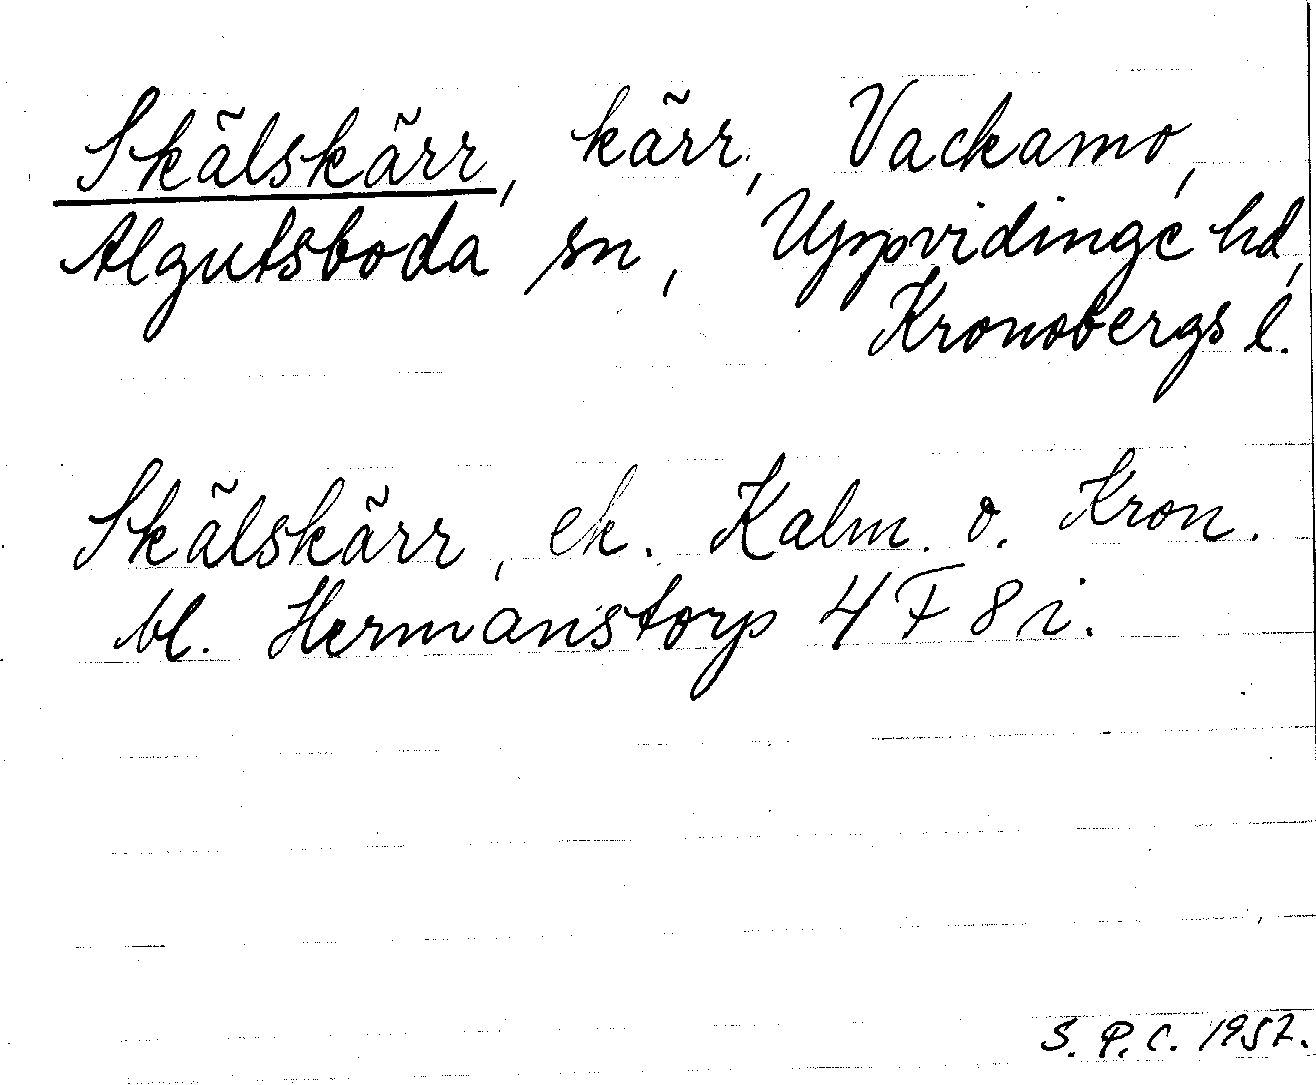 Skälskärr, kärr, Vackamo,
Algutsboda sn, Uppvidinge hd,
Kronobergs l.
Skälskärr, ek. Kalm. o. Kron.
bl. Hermanstorp 4 F 8 i.
S. P. C. 1957.